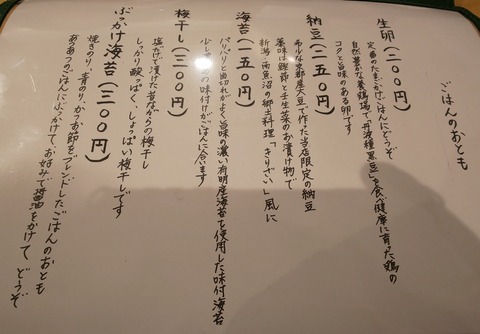 ごはんのおとも
生卵(二〇〇円)
定番のたまごかけごはんにどうぞ
自然豊かな養鶏場で「丹波種黒豆」を食べ健康に育った鶏の
コクと旨味のある卵です
納豆(一五〇円)
希少な京都産大豆で作った当店限定の納豆
薬味は鰹節と壬生菜のお漬け物で
新潟・南魚沼の郷土料理「きりざい」風に
海苔(一五〇円)
パリパリと歯切れがよく旨味の濃い有明産海苔を使用した味付海苔
少し の味付けがごはんに合います
梅干し(三〇〇円)
塩だけで漬けた昔ながらの梅干し
しっかり酸っぱく、しょっぱい梅干しです
ぶっかけ海苔(三〇〇円)
焼きのり、青のり、かつお節をブレンドしたごはんのおとも
あつあつのごはんにぶっかけて、お好みで醤油をかけて、どうぞ